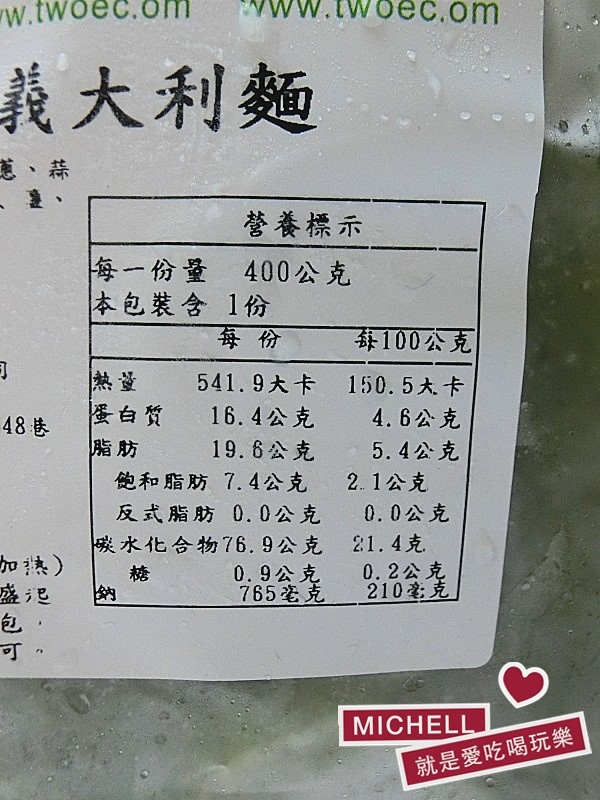 www.twoec.com www.twoec.com
義大利麵
蔥、蒜
、
營養標示
每一份量 400公克
本包裝含 1份
每 份 每100公克
熱量 541.9大卡 150.5大卡
蛋白質 16.4公克 4.6公克
脂肪 19.6公克 5.4公克
飽和脂肪 7.4公克 2.1公克
反式脂肪 0.0公克 0.0公克
碳水化合物 76.9公克 21.4克
糖 0.9公克 0.2公克
鈉 765毫克 210毫克
司
48巷
加熱)
盛
包，
可。
MICHELL
就是愛吃喝玩樂